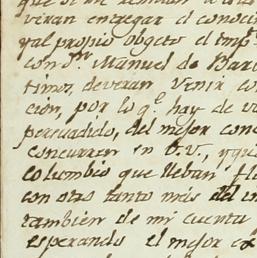 que si me
veran entregar el conoci
y al propio obgeto el emp.
con Dn. Manuel de Bar
timos, deveran venir co
cion, por lo q.e hay de v
persuadido, del mejor con
concurren en V., y qu
columbio que lleban
con otro tanto más del in
tambien de mi cuenta
esperando el mejor ex